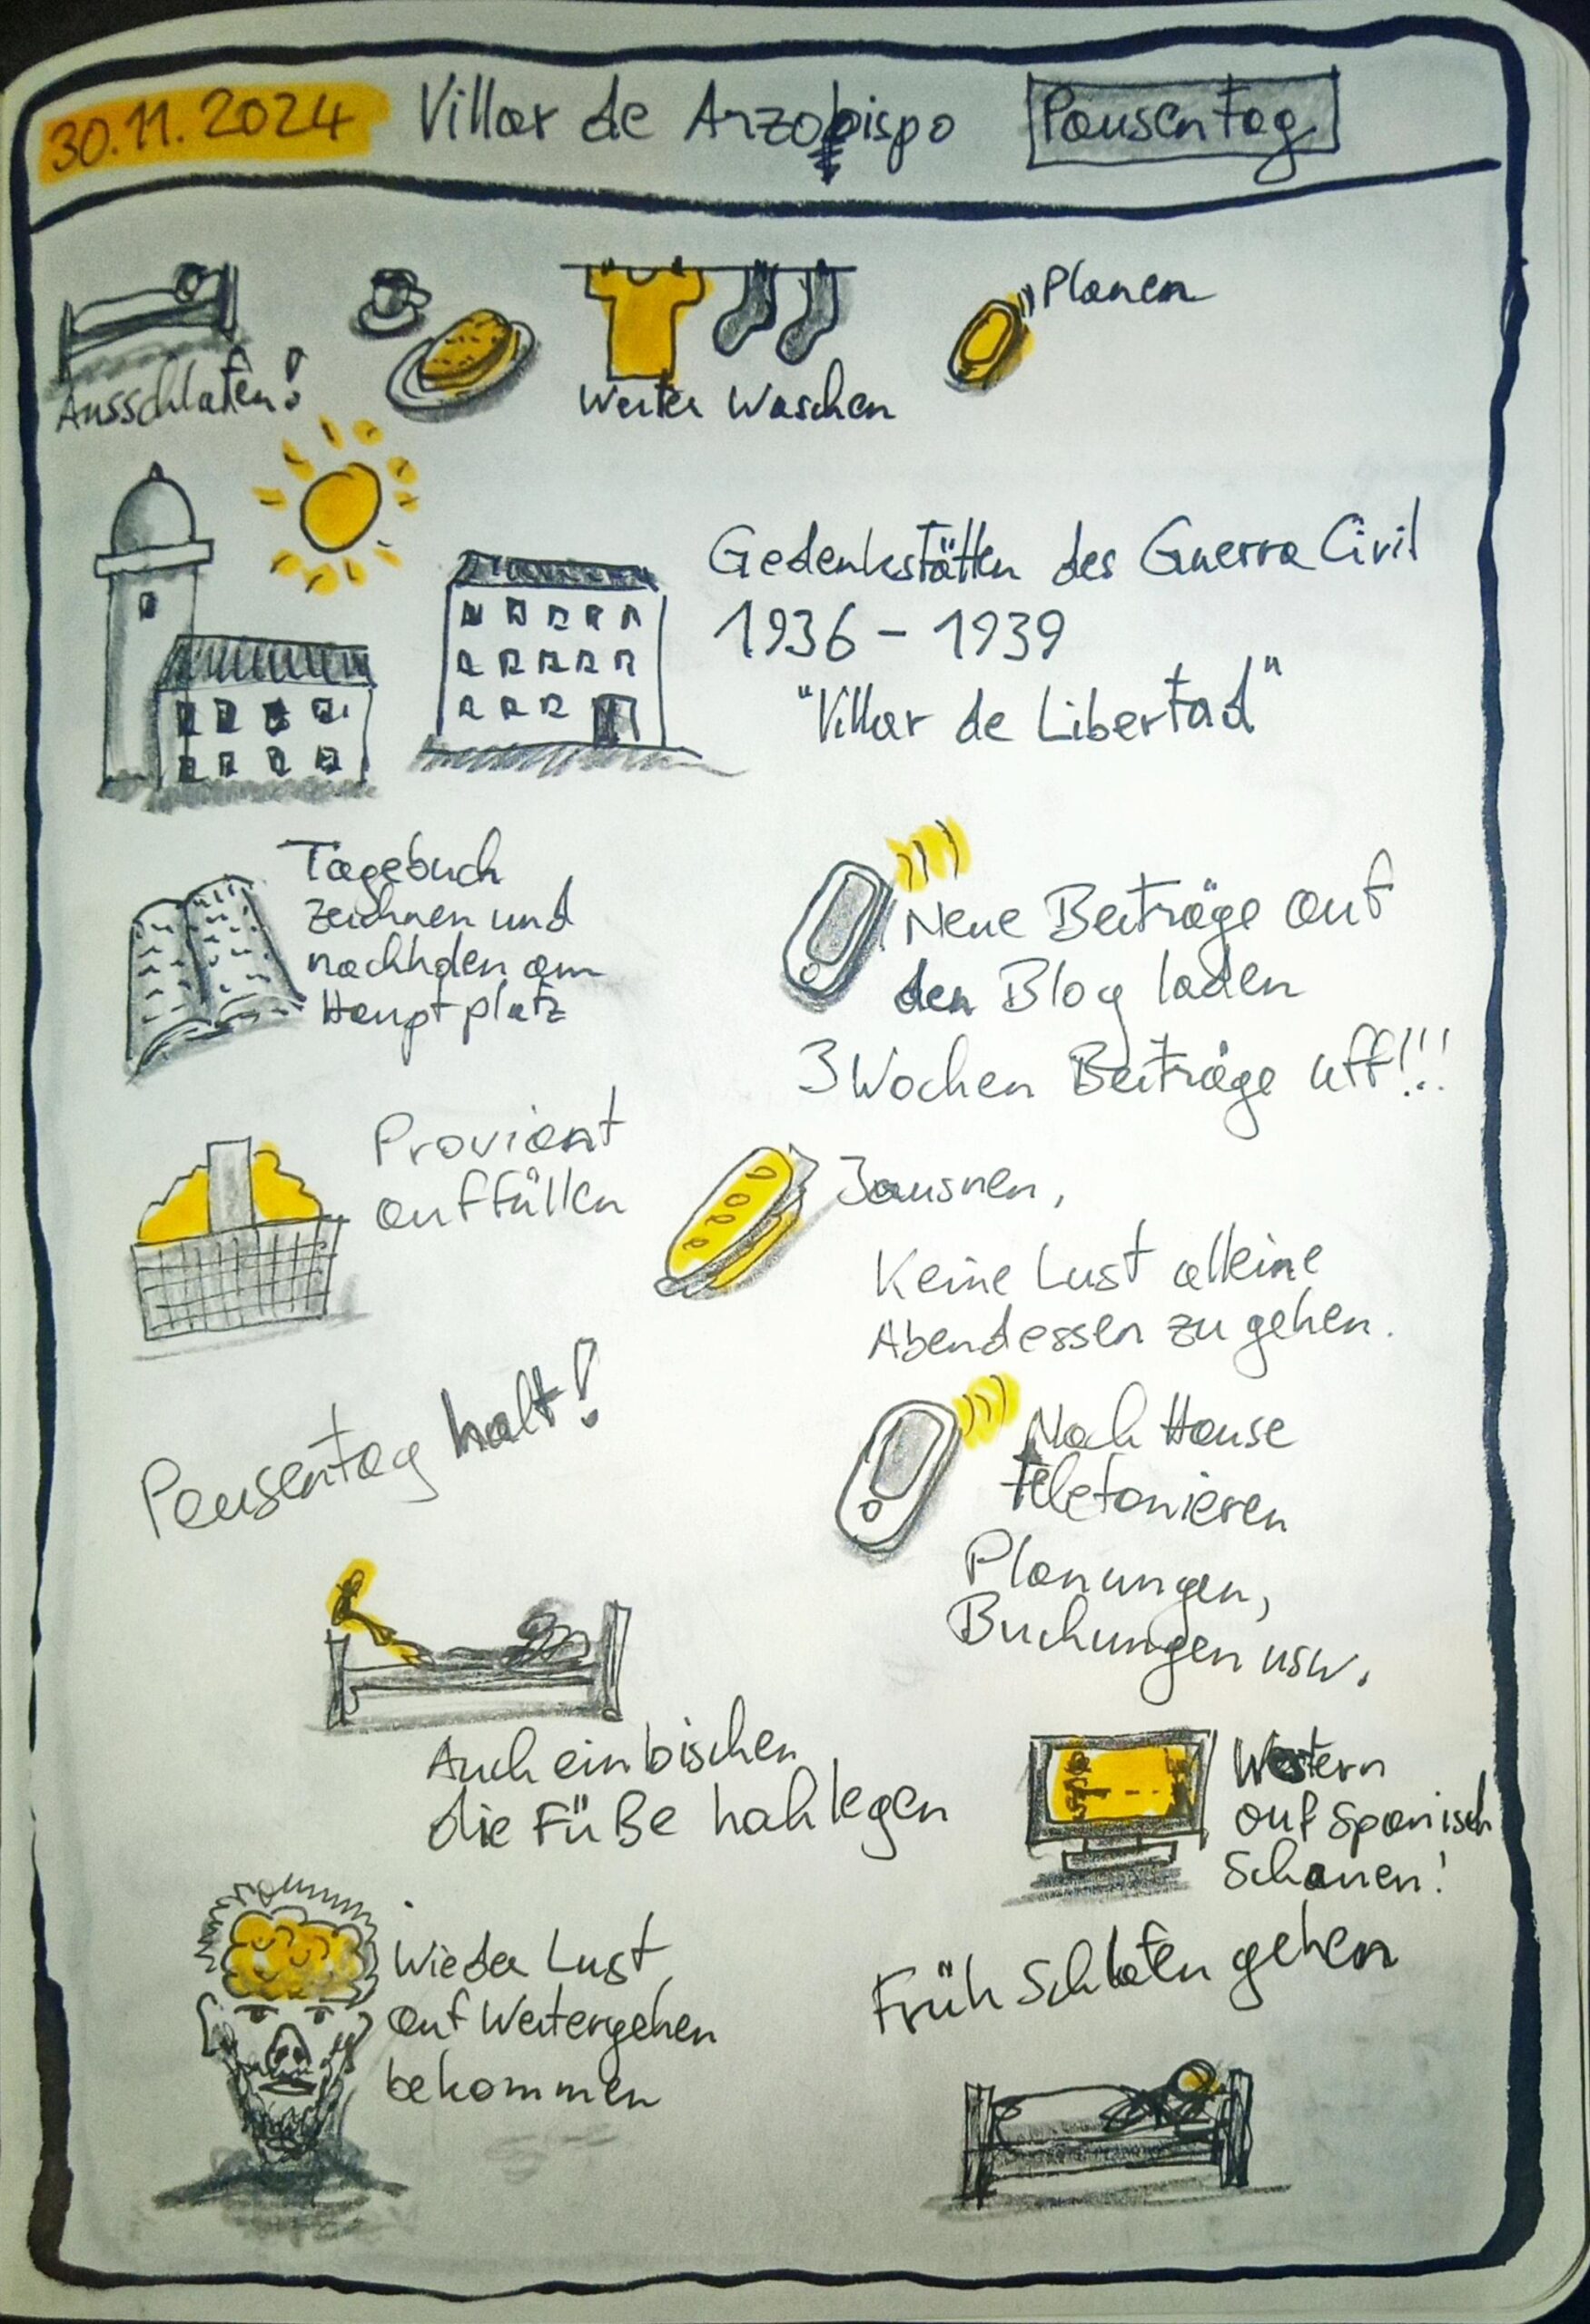 30.11.2024 Villar de Arzobispo Pausentag
Ausschlafen!
Weiter Waschen
Planen
Gedenkstätten des Guerra Civil
1936 - 1939
"Villar de Libertad"
Tagebuch
zeichnen und
nachholen am
Hauptplatz
Neue Beiträge auf
den Blog laden
3 Wochen Beiträge uff!!!
Proviant
auffüllen
Jausnen,
Keine Lust alleine
Abendessen zu gehen.
Pausentag halt!
Nach Hause
telefonieren
Planungen,
Buchungen usw.
Auch ein bischen
die Füße hochlegen
Western
auf Spanisch
Schauen!
Wieder Lust
auf Weitergehen
bekommen
Früh Schlafen gehen